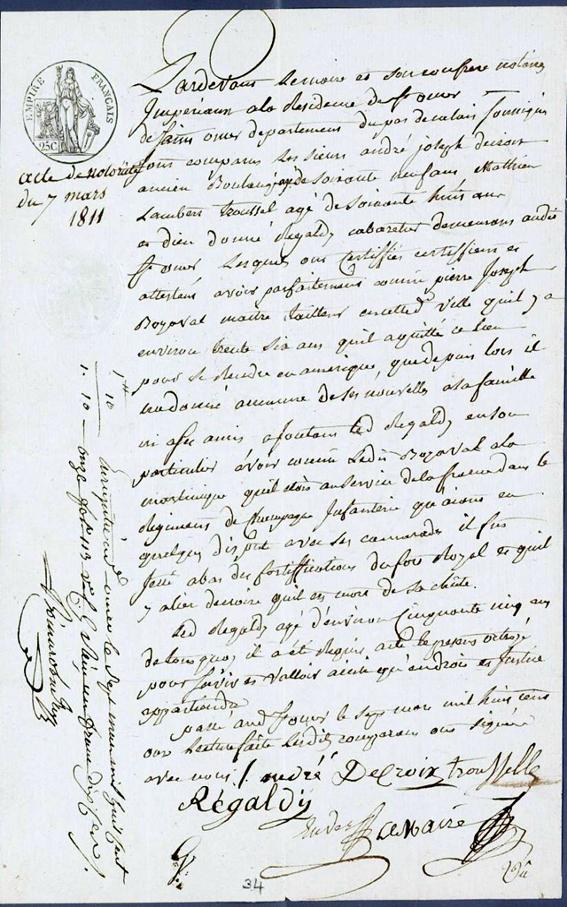 EMPIRE FRANÇAIS
25C
acte de notoriété
du 7 mars
1811
Pardevant Lemaire et son confrere notaires
Impériaux ala Residence de St omer
département du pas de calais soussignés
sont comparus Les sieurs andré joseph decroix
ancien Boulanger agé de soixante neuf ans Mathieu
Lambert troussel agé de soixante huit ans
et dieu donné Regaldy cabaretier demeurans audit
St omer Lesquels ont certifiés certiffient et
attestent avoir parfaitement connu pierre Joseph
Bozaval maitre tailleur en cette de Ville quil y a
environ trente six ans quil a quitté ce lieu
pour se Rendre en amerique, que depuis lors il
na donné aucune de ses nouvelles a sa famille
ni a ses amis ajoutant Led Regaldy en son
particulier avoir connu Ledit Bozaval ala
martinique quil etois au service de la france dans le
Regiment de Champagne Infanterie qu'aiant eu
quelques disput avec ses camarades il fus
jetté abas des fortifications du fort Royal et quil
y a lieu de croire quil est mort de sa chûte.
Led Regaldy agé d'environ Cinquante cinq ans
de tout quoy il a été Requis acte le present octroyé
pour servir et valloir ainsi qu'en droit et Justice
appartiendra
passé aud St omer le sept mars mil huit cent
onze Lecture faite Lesdits comparans ont signé
avec nous / andré Decroix trousselle
Régaldy
Lemaire
1 10
1. 10
Enregistré à St omer le sept mars mil huit cent
onze
34